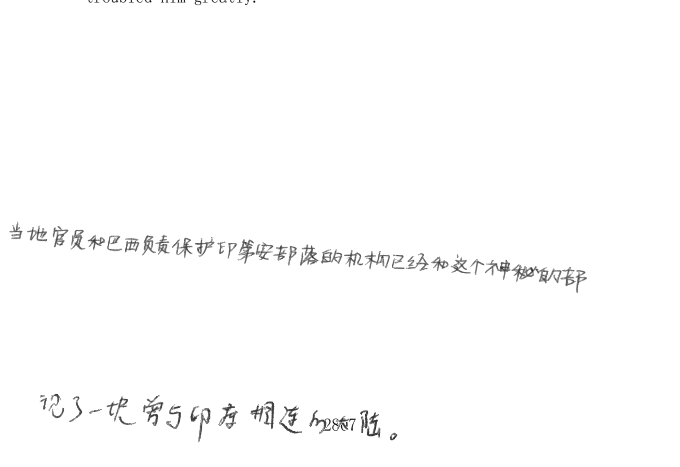 troubled him greatly.
当地官员和巴西负责保护印第安部落的机构已经和这个神秘的部
记了一块曾与印度相连的大陆。
2867